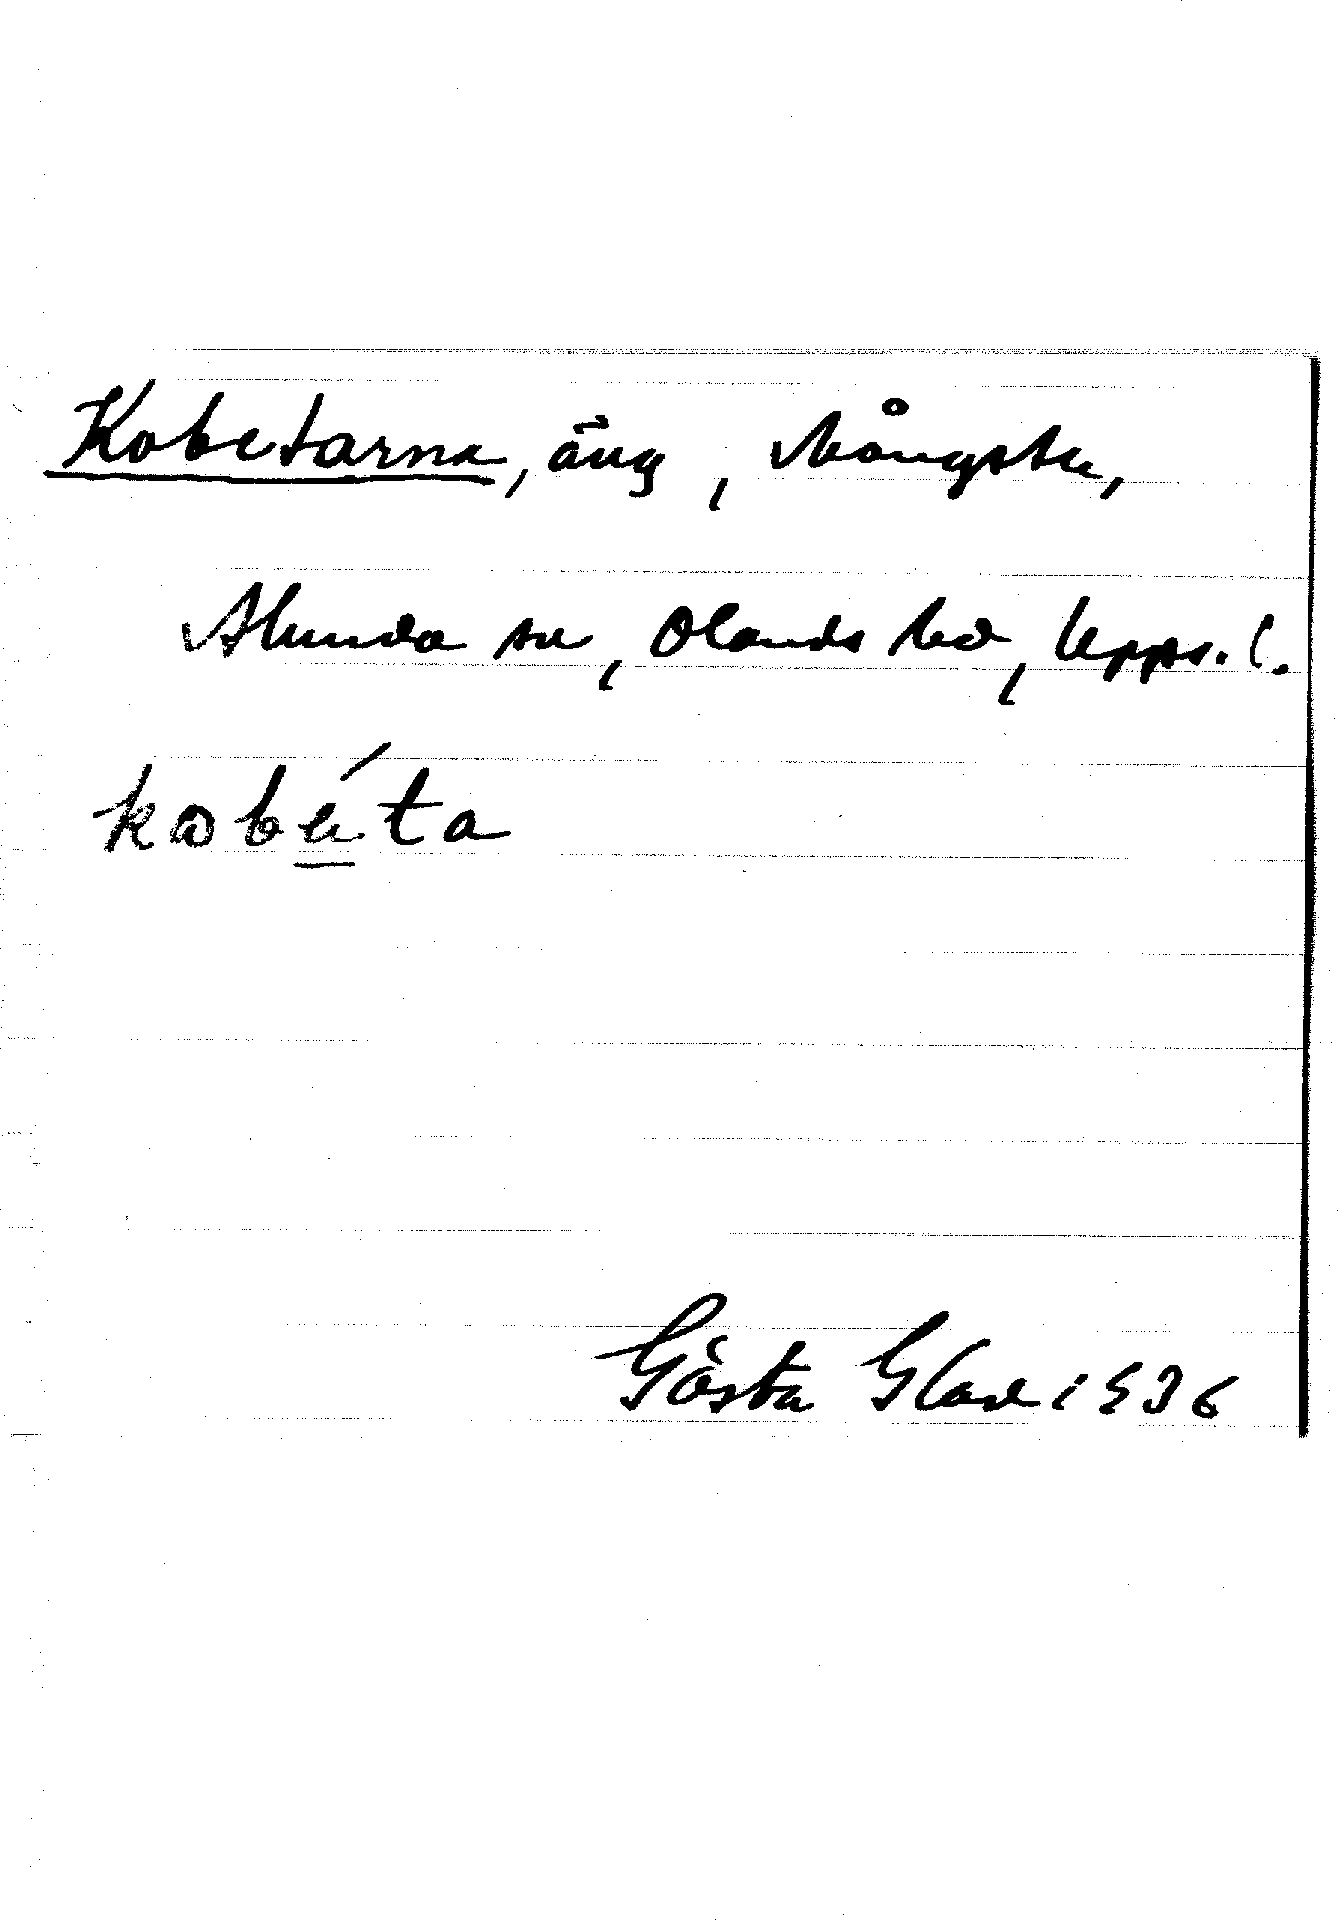 Kobetarna, äng, Mångsta,
Alunda sn, Olands hd, Upps. l.
kobéta
Gösta Glase 1936